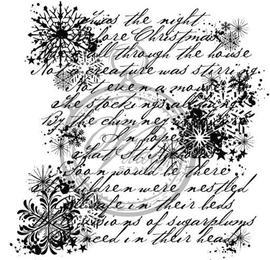 'twas the night
before Christmas
all through the house
Not creature was stirring
Not even a mou
the stockings all
By the chimney
In hope
that St
Soon would be there
children were nestled
safe in their beds
visions of sugarplums
danced in their heads